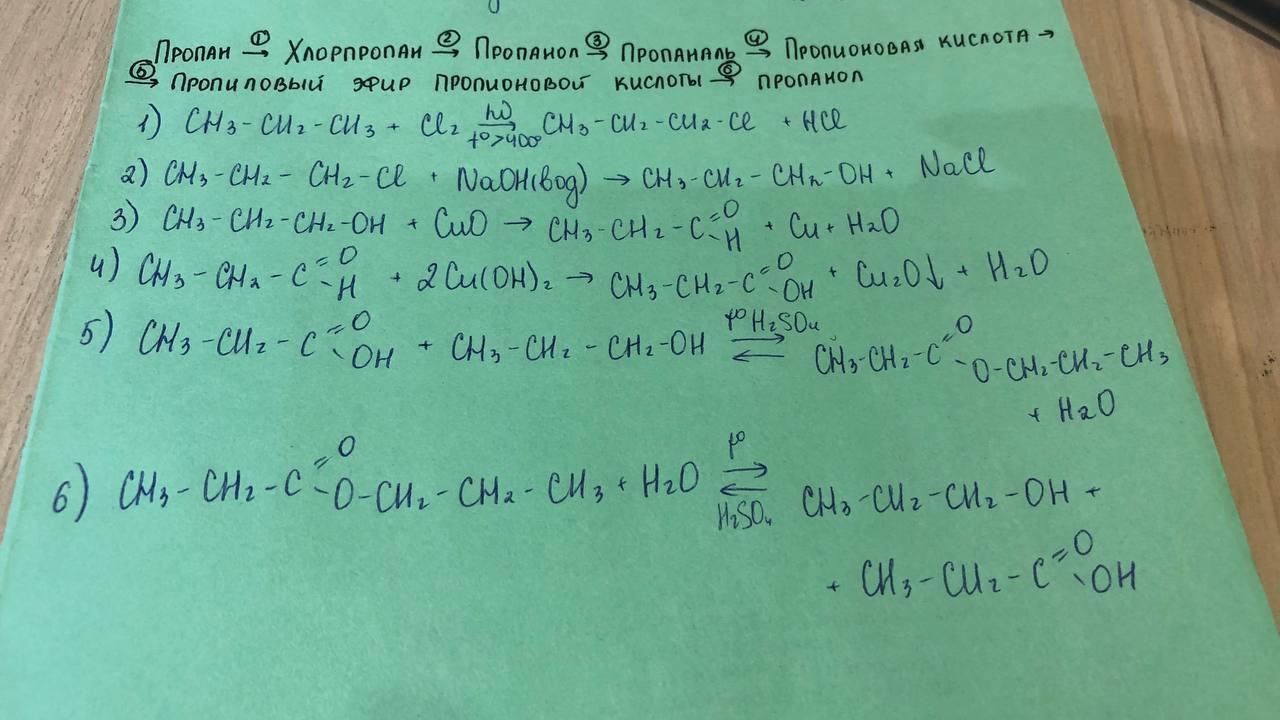 Пропан ①→ Хлорпропан ②→ Пропанол ③→ Пропаналь ④→ Пропионовая кислота →
⑤→ Пропиловый эфир пропионовой кислоты ⑥→ пропанол
1) CH₃-CH₂-CH₃ + Cl₂ hν→ t°>400° CH₃-CH₂-CH₂-Cl + HCl
2) CH₃-CH₂-CH₂-Cl + NaOH(вод) → CH₃-CH₂-CH₂-OH + NaCl
3) CH₃-CH₂-CH₂-OH + CuO → CH₃-CH₂-C=O-H + Cu + H₂O
4) CH₃-CH₂-C=O-H + 2Cu(OH)₂ → CH₃-CH₂-C=O-OH + Cu₂O↓ + H₂O
5) CH₃-CH₂-C=O-OH + CH₃-CH₂-CH₂-OH t° H₂SO₄ ⇄ CH₃-CH₂-C=O-O-CH₂-CH₂-CH₃
+ H₂O
6) CH₃-CH₂-C=O-O-CH₂-CH₂-CH₃ + H₂O t° ⇄ H₂SO₄ CH₃-CH₂-CH₂-OH +
+ CH₃-CH₂-C=O-OH